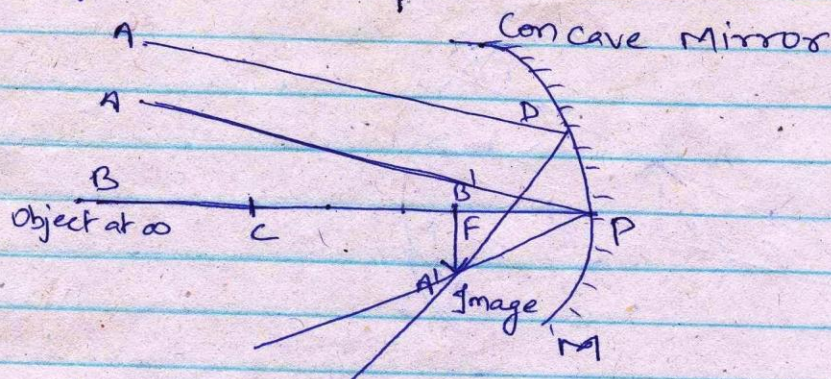 Concave Mirror
A
A
D
B
B'
Object at ∞
C
F
P
A'
Image
M